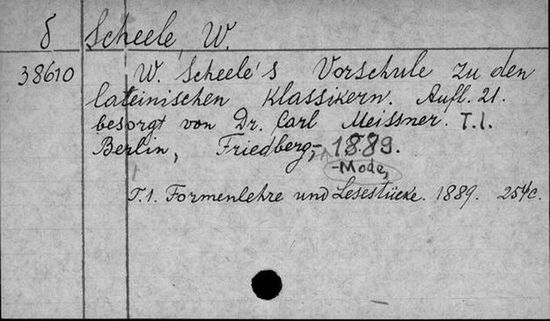 δ Scheele, W.
38610 W. Scheele's Vorschule zu den
lateinischen Klassikern. Aufl. 21.
besorgt von Dr. Carl Meissner. T.1.
Berlin, Friedberg, 1889.
-Mode,
T.1. Formenlehre und Lesestücke. 1889. 254c.